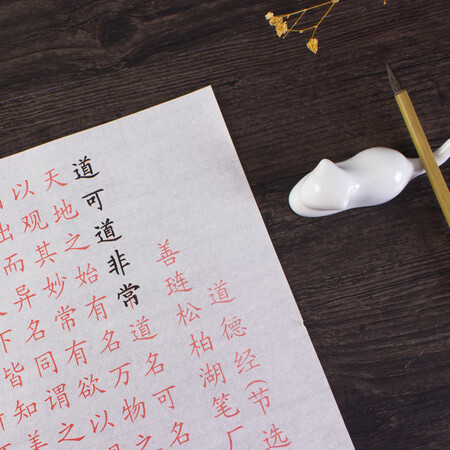 道德经(节选
善琏松柏湖笔厂
道可道非常道名可名
天地之始有名万物之
以观其妙常有欲以
出而异名同谓之
下皆知美